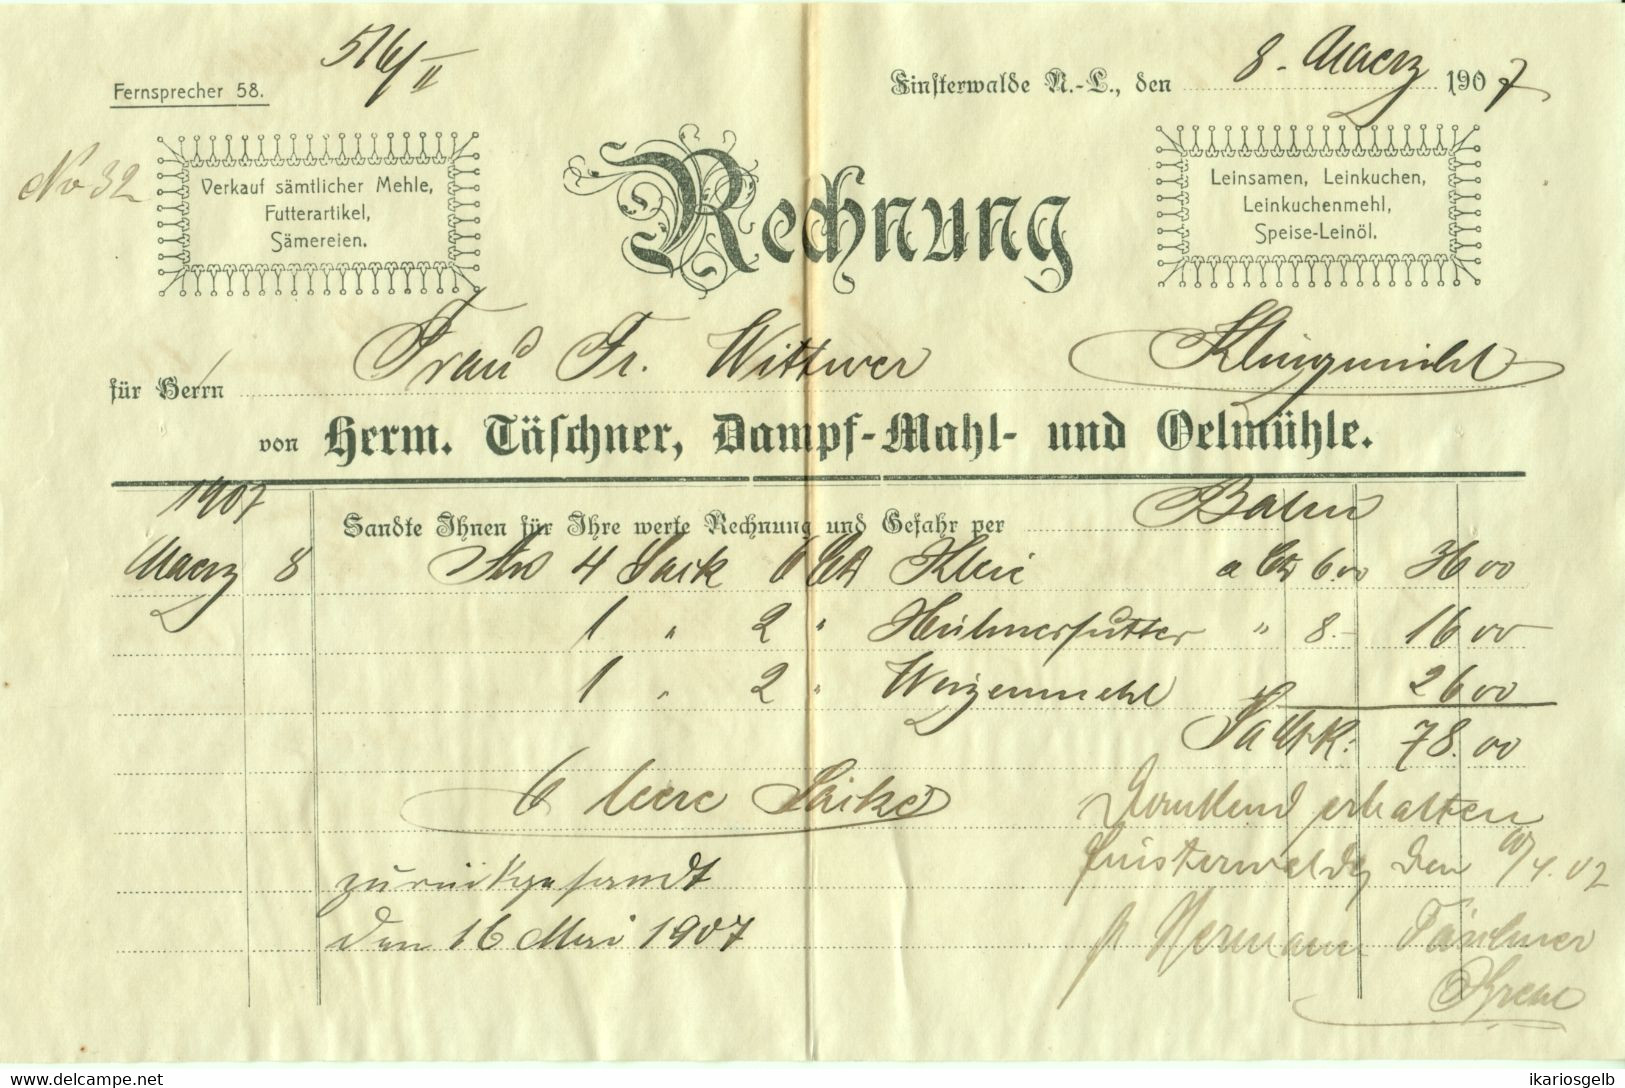 516/II
Fernsprecher 58.
Finsterwalde N.-L., den 8. Maerz 1907
No 32
Verkauf sämtlicher Mehle,
Futterartikel,
Sämereien.
Rechnung
Leinsamen, Leinkuchen,
Leinkuchenmehl,
Speise-Leinöl.
für Herrn Frau Fr. Wittwer Klingmühl
von Herm. Täschner, Dampf-Mahl- und Oelmühle.
1907
Sandte Ihnen für Ihre werte Rechnung und Gefahr per Bahn
Maerz 8 4 Sack 6 Ctr Kleie a Ctr 6.00 36 00
1 " 2 " Hühnerfutter " 8.- 16 00
1 " 2 " Weizenmehl 26 00
78.00
6 leere Säcke
Dankend erhalten
zurückgesandt
Finsterwalde, den
den 16 Mai 1907
Hermann Täschner
ikariosgelb
delcampe.net